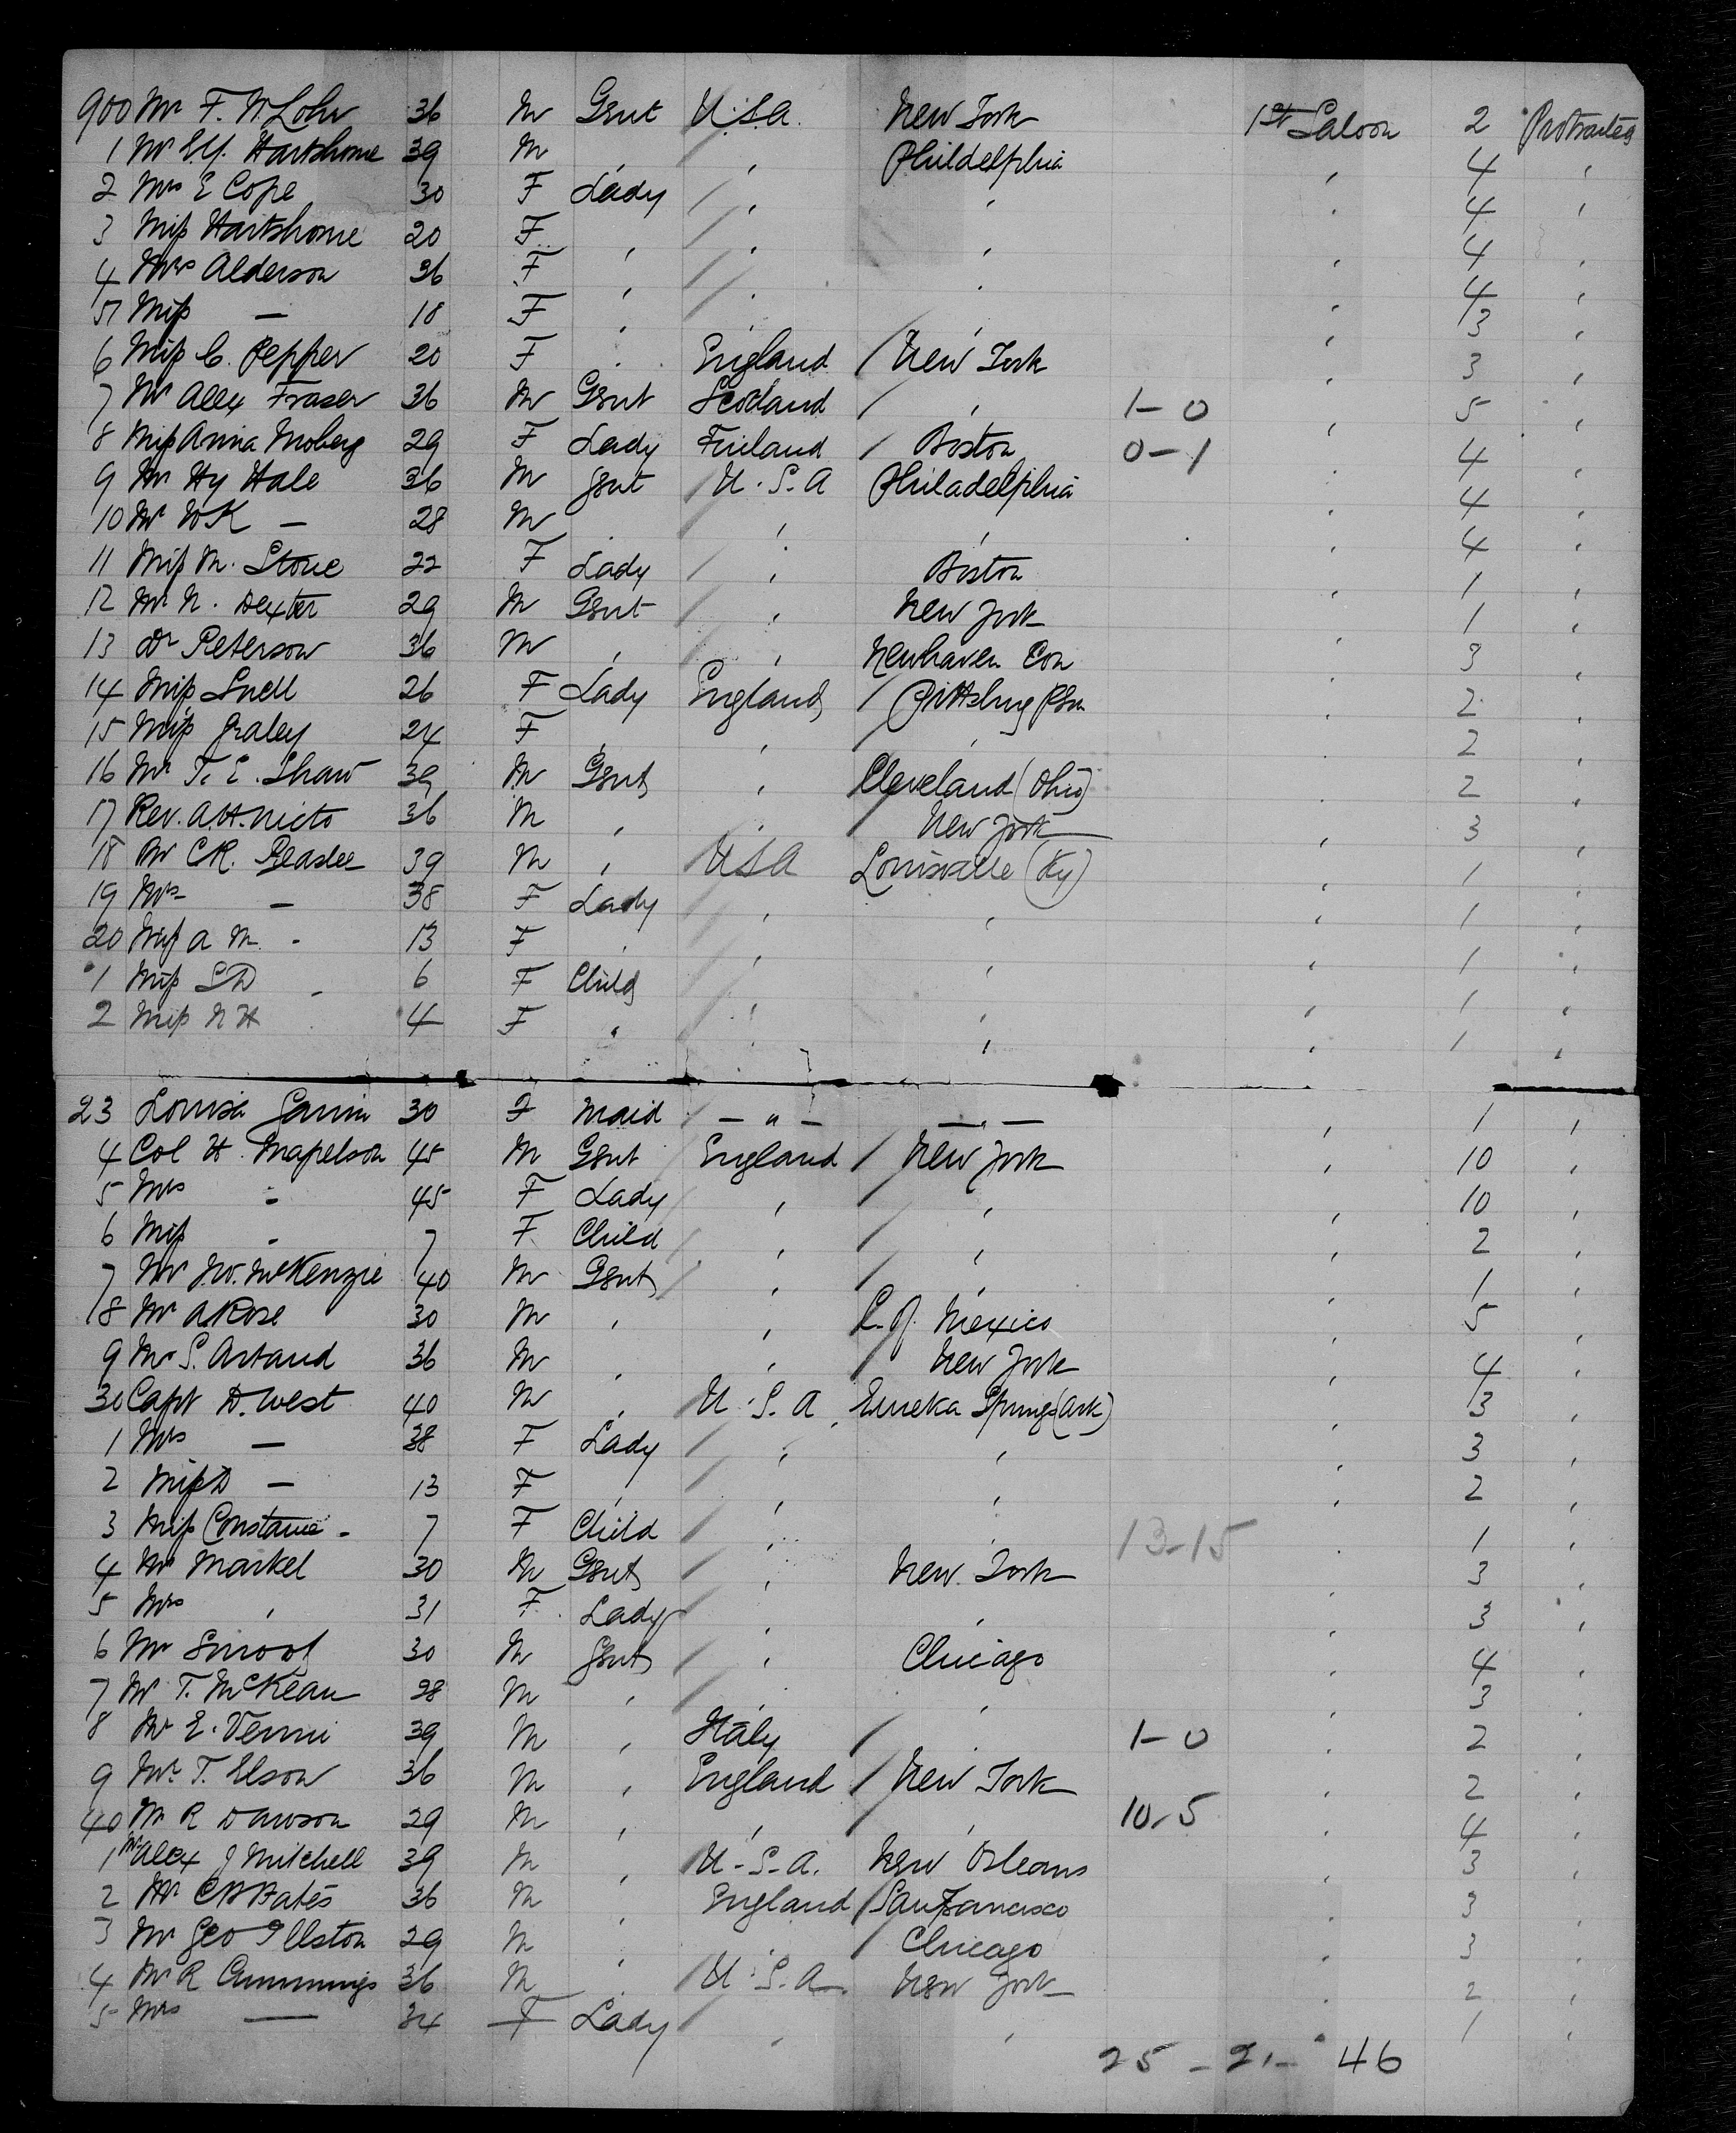 900 Mr F. W. Lohr 36 M Gent U.S.A. New York 1st Saloon 2 Protracted
1 Mr Hartshorne 39 M " " Phildelphia " 4 "
2 Mrs E Cope 30 F Lady " " " 4 "
3 Miss Hartshorne 20 F " " " " 4 "
4 Mrs Alderson 36 F " " " " 4 "
5 Miss — 18 F " " " " 3 "
6 Miss C. Pepper 20 F " England New York " 3 "
7 Mr Alex Fraser 36 M Gent Scotland " 1-0 " 5 "
8 Miss Anna Moberg 29 F Lady Finland Boston 0-1 " 4 "
9 Mr Hy Hale 36 M Gent U.S.A Philadelphia " 4 "
10 Mr W K — 28 M " " " " 4 "
11 Miss M. Stone 22 F Lady " Boston " 1 "
12 Mr N. Dexter 29 M Gent " New York " 1 "
13 Dr Peterson 36 M " " Newhaven Con " 3 "
14 Miss Snell 26 F Lady England Pittsburg Pen " 2 "
15 Miss Graley 24 F " " " " 2 "
16 Mr T. E. Shaw 39 M Gent " Cleveland (Ohio) " 2 "
17 Rev. A.H. Nieto 36 M " " New York " 3 "
18 Mr C.R. Peaslee 39 M " USA Louisville (Ky) " 1 "
19 Mrs — 38 F Lady " " " 1 "
20 Miss A M. - 13 F " " " " 1 "
1 Miss S D - 6 F Child " " " 1 "
2 Miss N H 4 F " " " " 1 "
23 Louisa 30 F Maid — " — — " — " 1 "
4 Col H. Mapelson 45 M Gent England New York " 10 "
5 Mrs - 45 F Lady " " " 10 "
6 Miss - 7 F Child " " " 2 "
7 Mr J.W. McKenzie 40 M Gent " " " 1 "
18 Mr A Rose 30 M " " C. of Mexico " 5 "
9 Mr S. Artaud 36 M " " New York " 4 "
30 Capt D. West 40 M " U.S.A Eureka Springs (Ark) " 3 "
1 Mrs — 38 F Lady " " " 3 "
2 Miss D — 13 F " " " " 2 "
3 Miss Constance - 7 F Child " " 13-15 " 1 "
4 Mr Markel 30 M Gent " New York " 3 "
5 Mrs " 31 F Lady " " " 3 "
6 Mr Smoot 30 M Gent " Chicago " 4 "
7 Mr T. McKean 28 M " " " " 3 "
8 Mr E. Venni 39 M " Italy " 1-0 " 2 "
9 Mr. T. Elson 36 M " England New York " 2 "
40 Mr R Dawson 29 M " " " 10-5 " 4 "
1 Mr Alex J Mitchell 39 M " U-S-A. New Orleans " 3 "
2 Mr Bates 36 M " England San Francisco " 3 "
3 Mr Geo Illston 29 M " " Chicago " 3 "
4 Mr R Cummings 36 M " U.S.A New York " 2 "
5 Mrs — 34 F Lady " " " 1 "
25 - 21 - 46